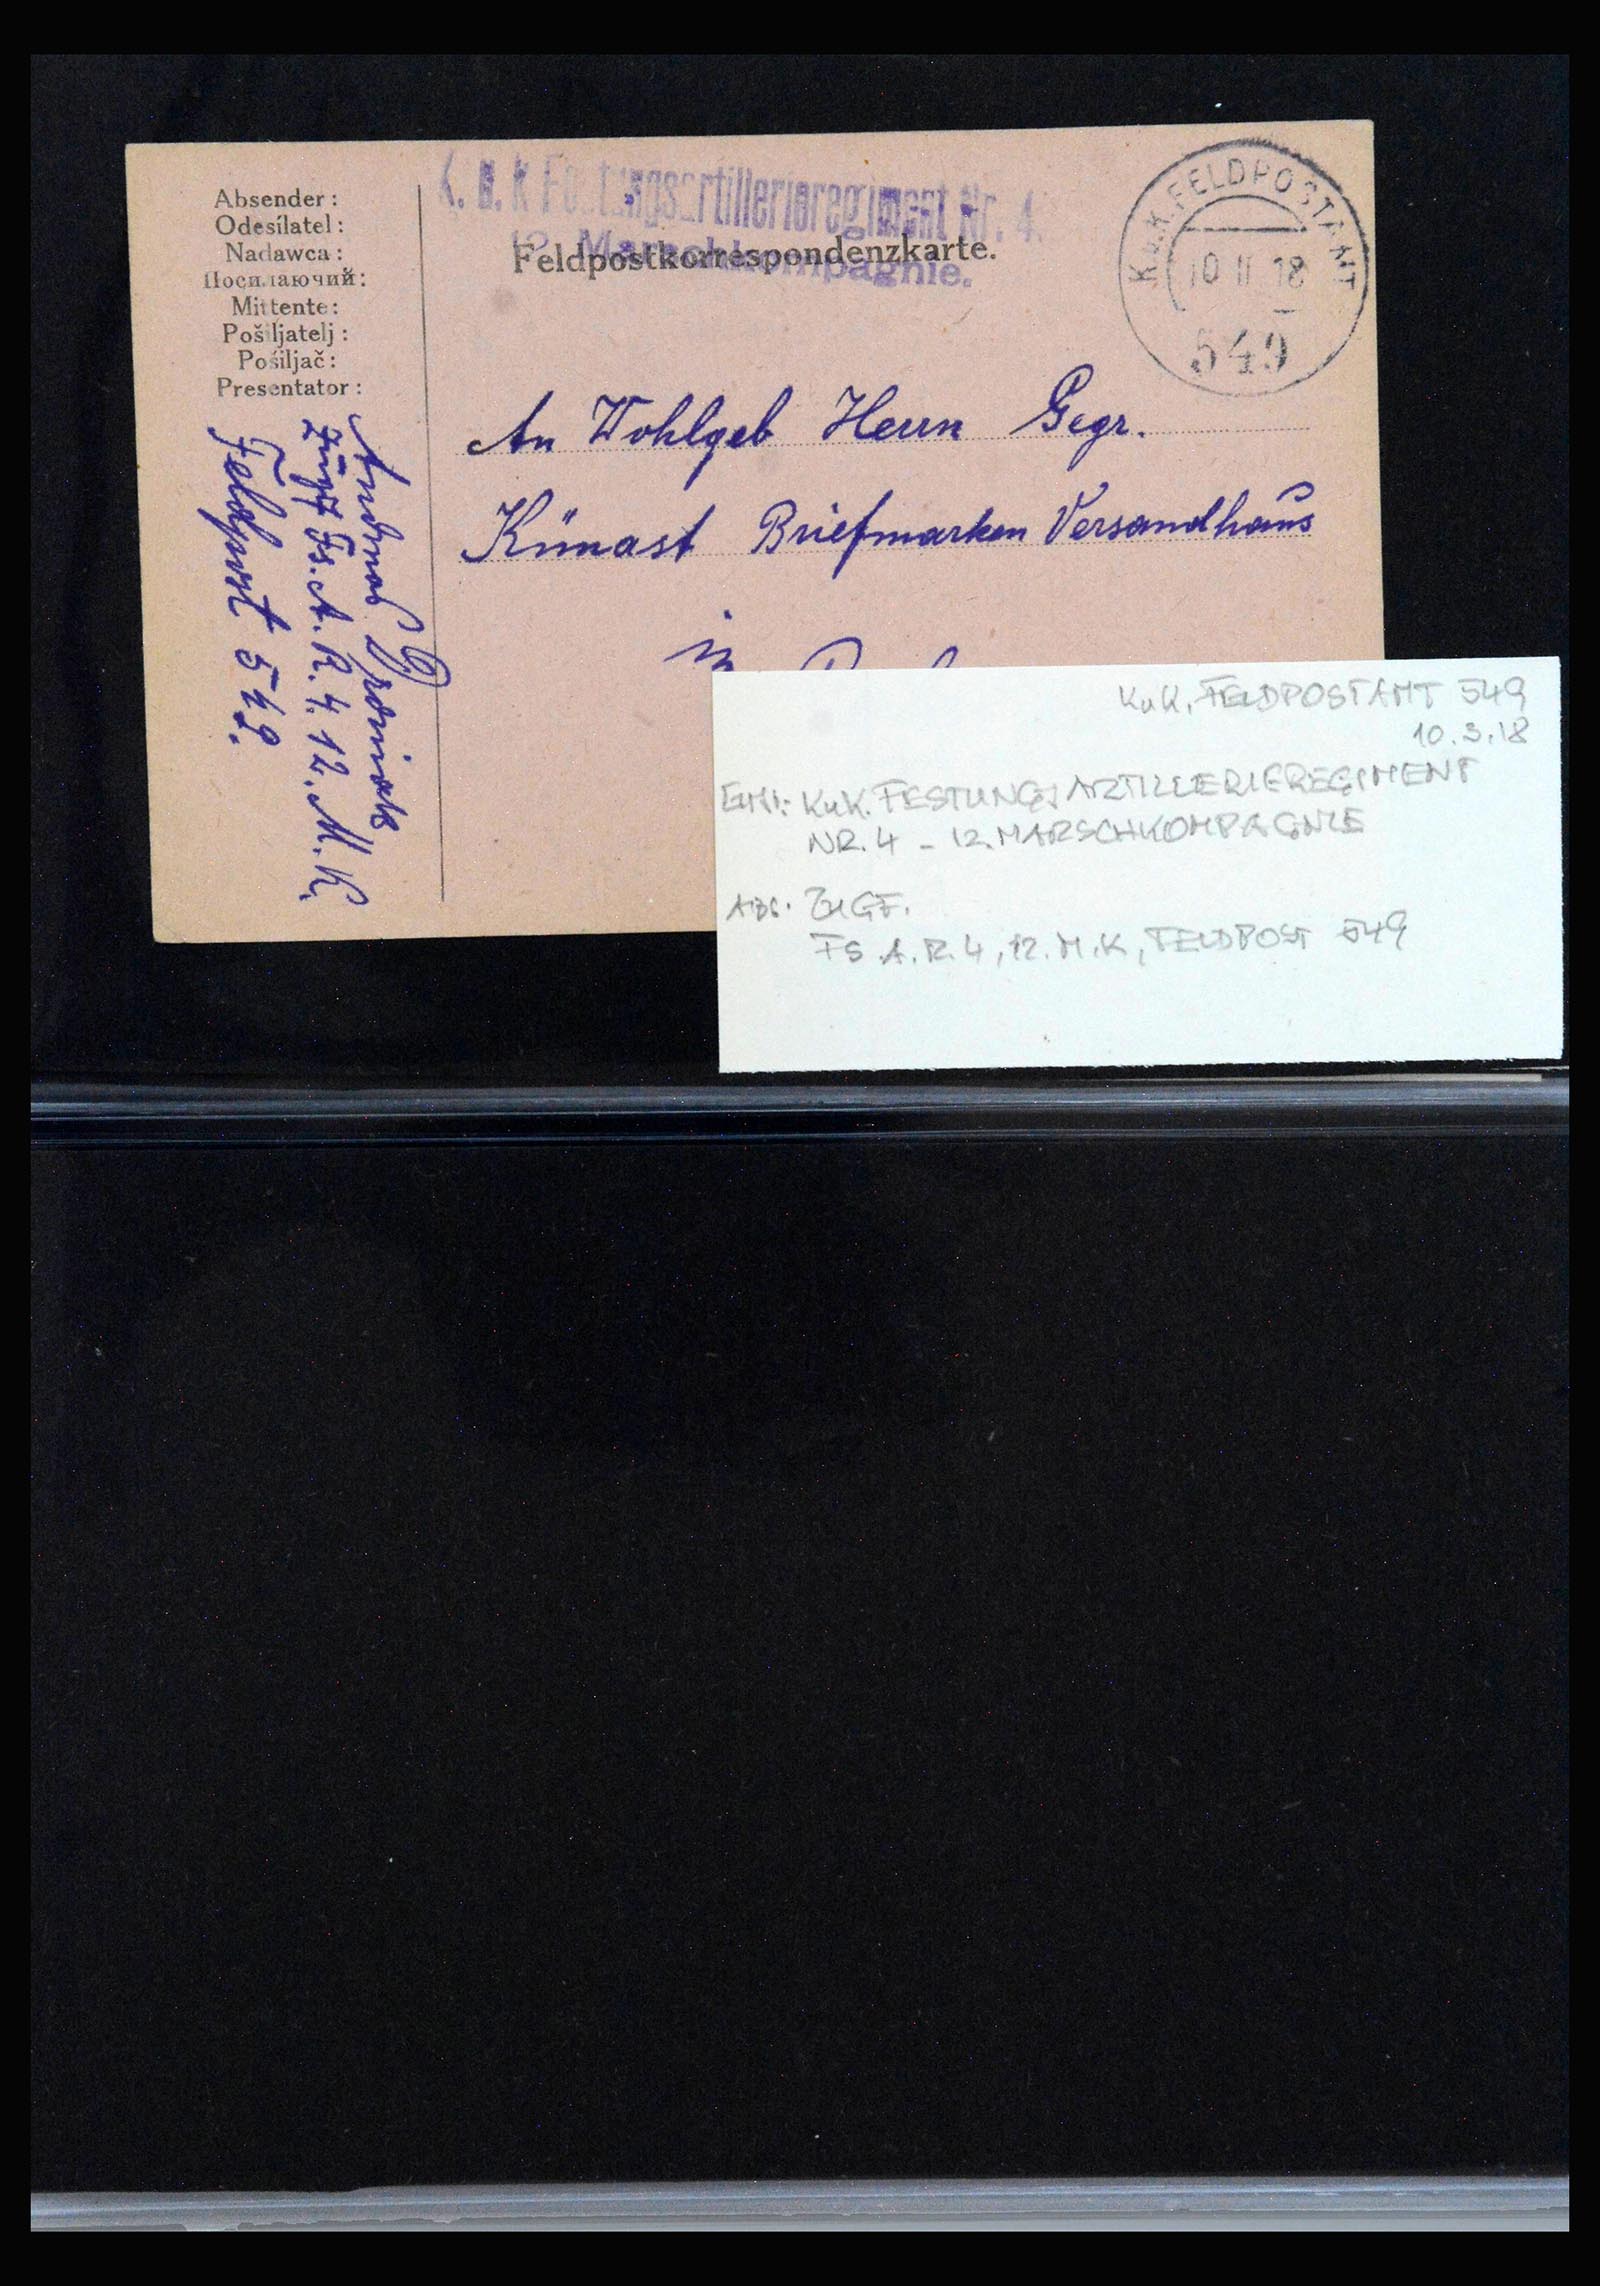 Absender :
Odesílatel :
Nadawca :
Посилаючий :
Mittente :
Pošiljatelj :
Pošiljač :
Presentator :
Zugsf Fs. A. R. 4. 12. M. K.
Feldpost 549.
K. u. k Festungsartillerieregiment Nr. 4.
12. Marschkompagnie.
Feldpostkorrespondenzkarte.
K.u.K. FELDPOSTAMT
10 II 18
549
An Wohlgeb Herrn Gegr.
Künast Briefmarken Versandhaus
in
KuK. FELDPOSTAMT 549
10.3.18
KuK. FESTUNGSARTILLERIEREGIMENT
NR. 4 - 12. MARSCHKOMPAGNIE
ABS. ZUGF.
FS .A. R. 4, 12. M.K, FELDPOST 549